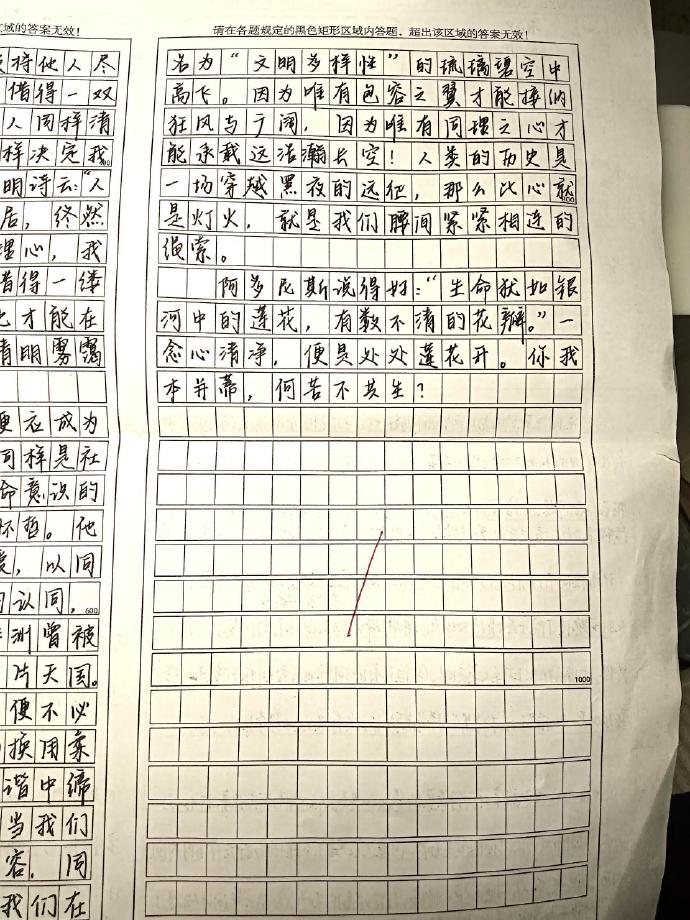 区域的答案无效！
将他人尽
借得一双
人同样清
样决定我
明诗云："人
居，终然
理心，我
借得一缕
也才能在
清明雾霭
便衣成为
同样是社
命意识的
怀哲。他
以同
认同，
600
洲曾被
片天国。
便不必
换用柔
谐中缔
当我们
容，同
我们在
请在各题规定的黑色矩形区域内答题，超出该区域的答案无效！
名为“文明多样性”的琉璃碧空中
高飞。因为唯有包容之翼才能接纳
狂风与广阔，因为唯有同理之心才
能承载这浩瀚长空！人类的历史是
一场穿越黑夜的远征，那么比心就
是灯火，就是我们腰间紧紧相连的
绳索。
阿多尼斯说得好：“生命犹如银
河中的莲花，有数不清的花瓣。”一
念心清净，便是处处莲花开。你我
本并蒂，何苦不共生？
1000